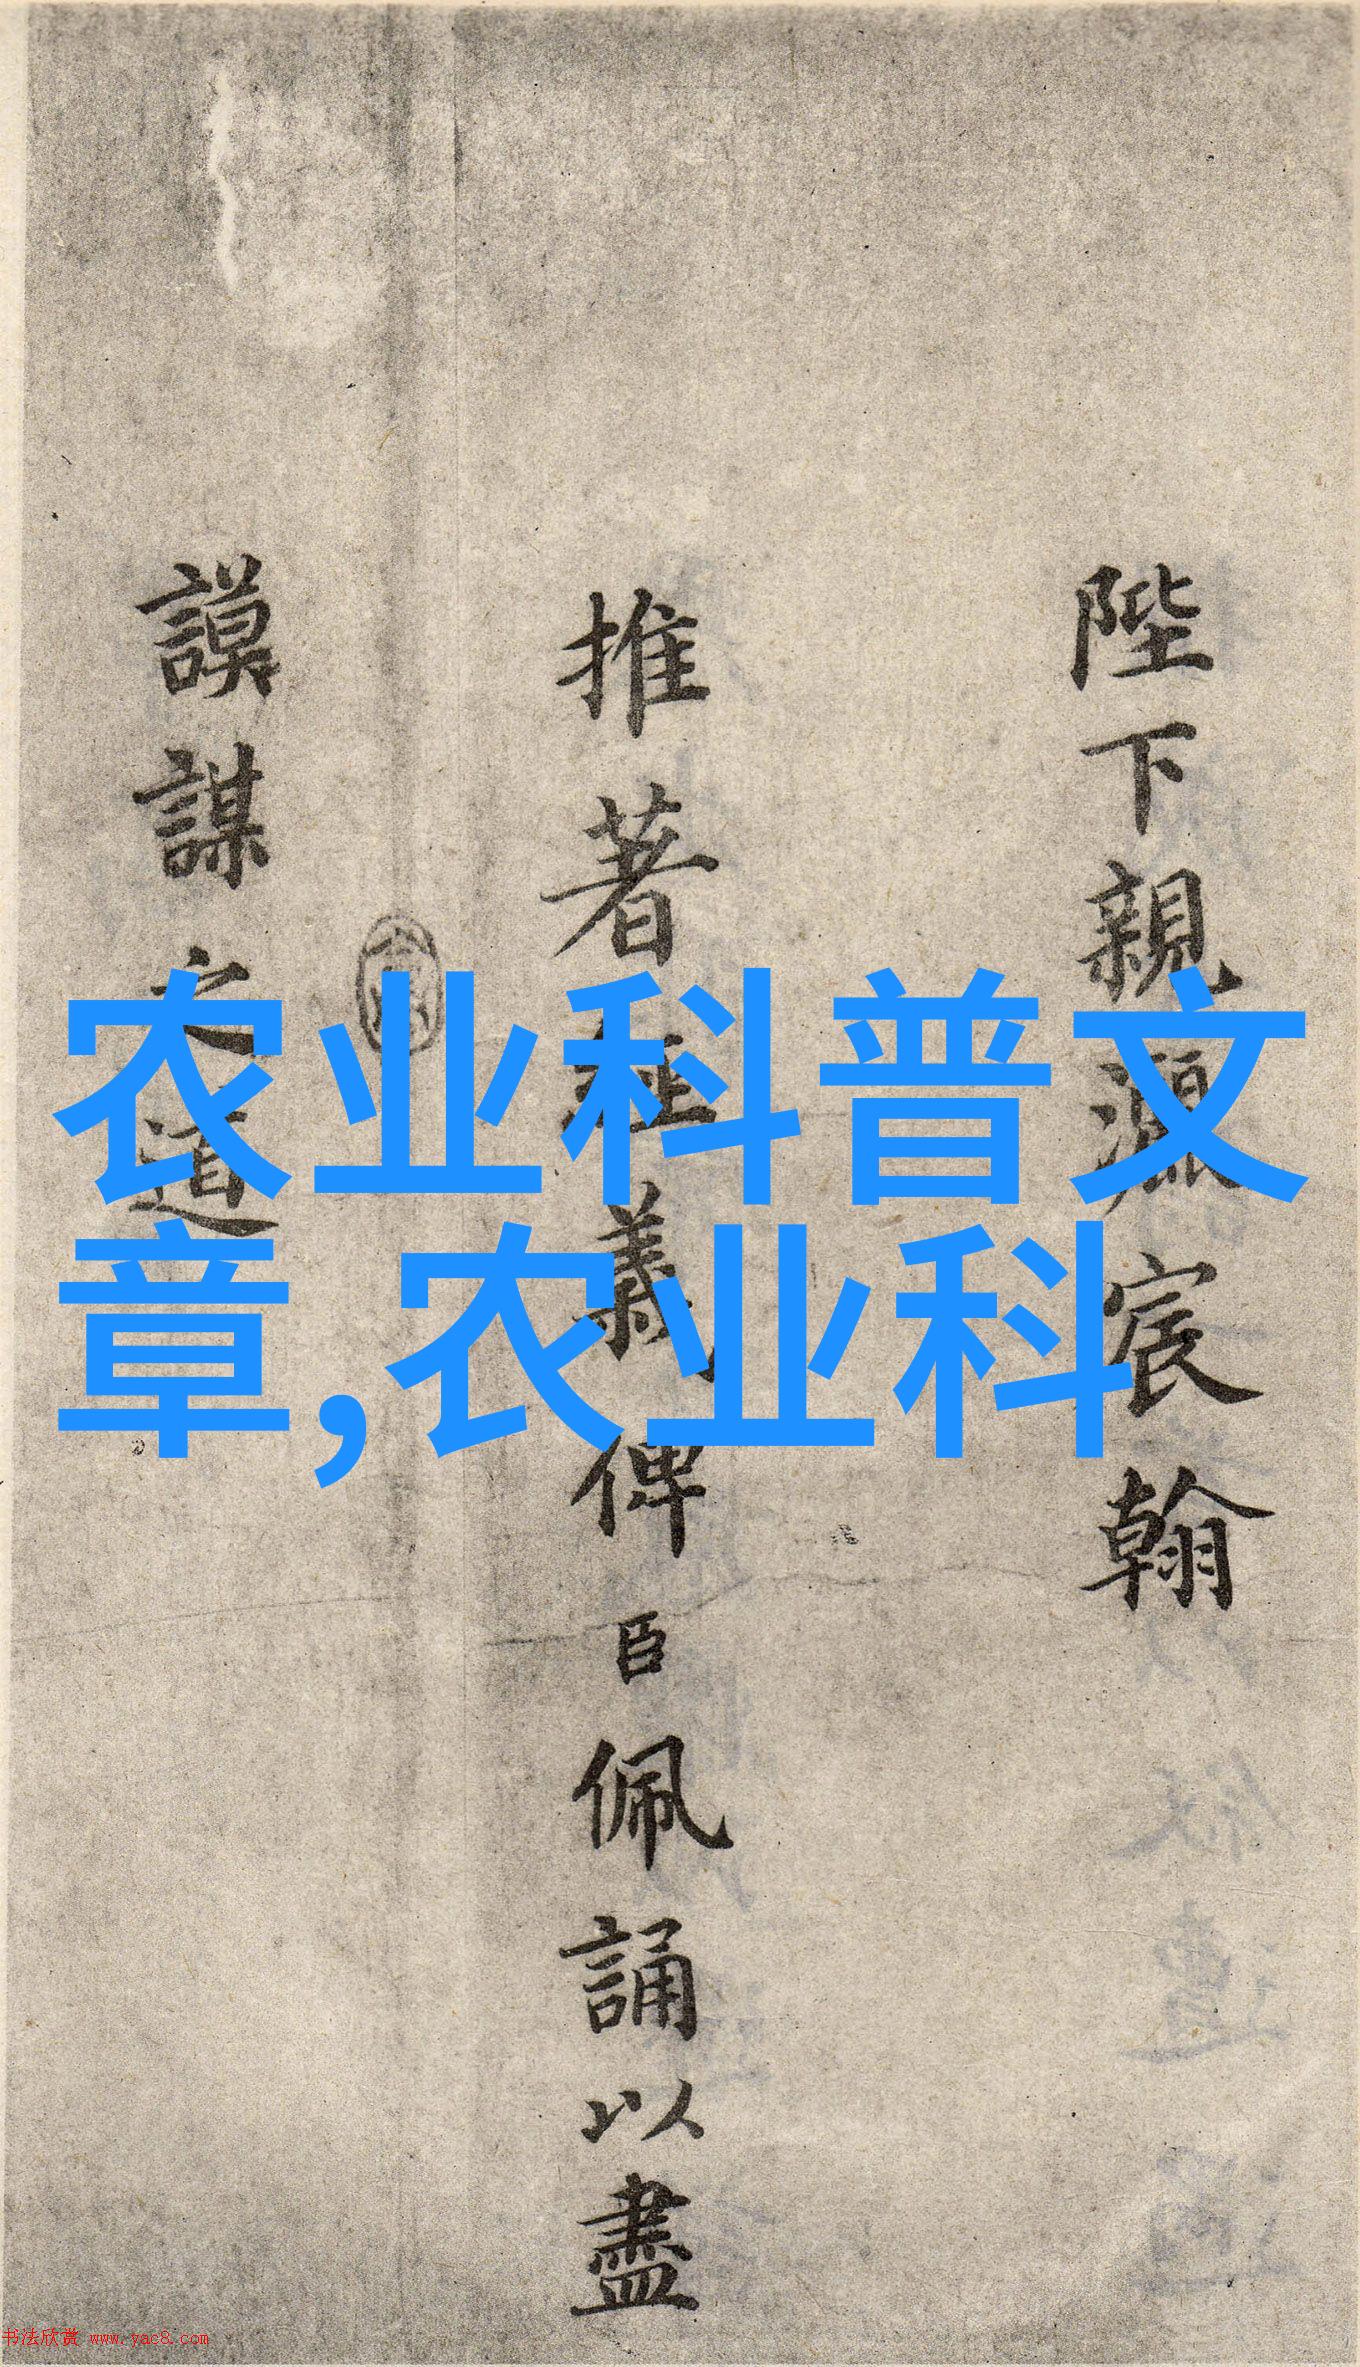 陛下親灑宸翰
推著經義俾臣佩誦以盡
謨謀之道
农业科普文
章,农业科
书法欣赏 www.yac8.com